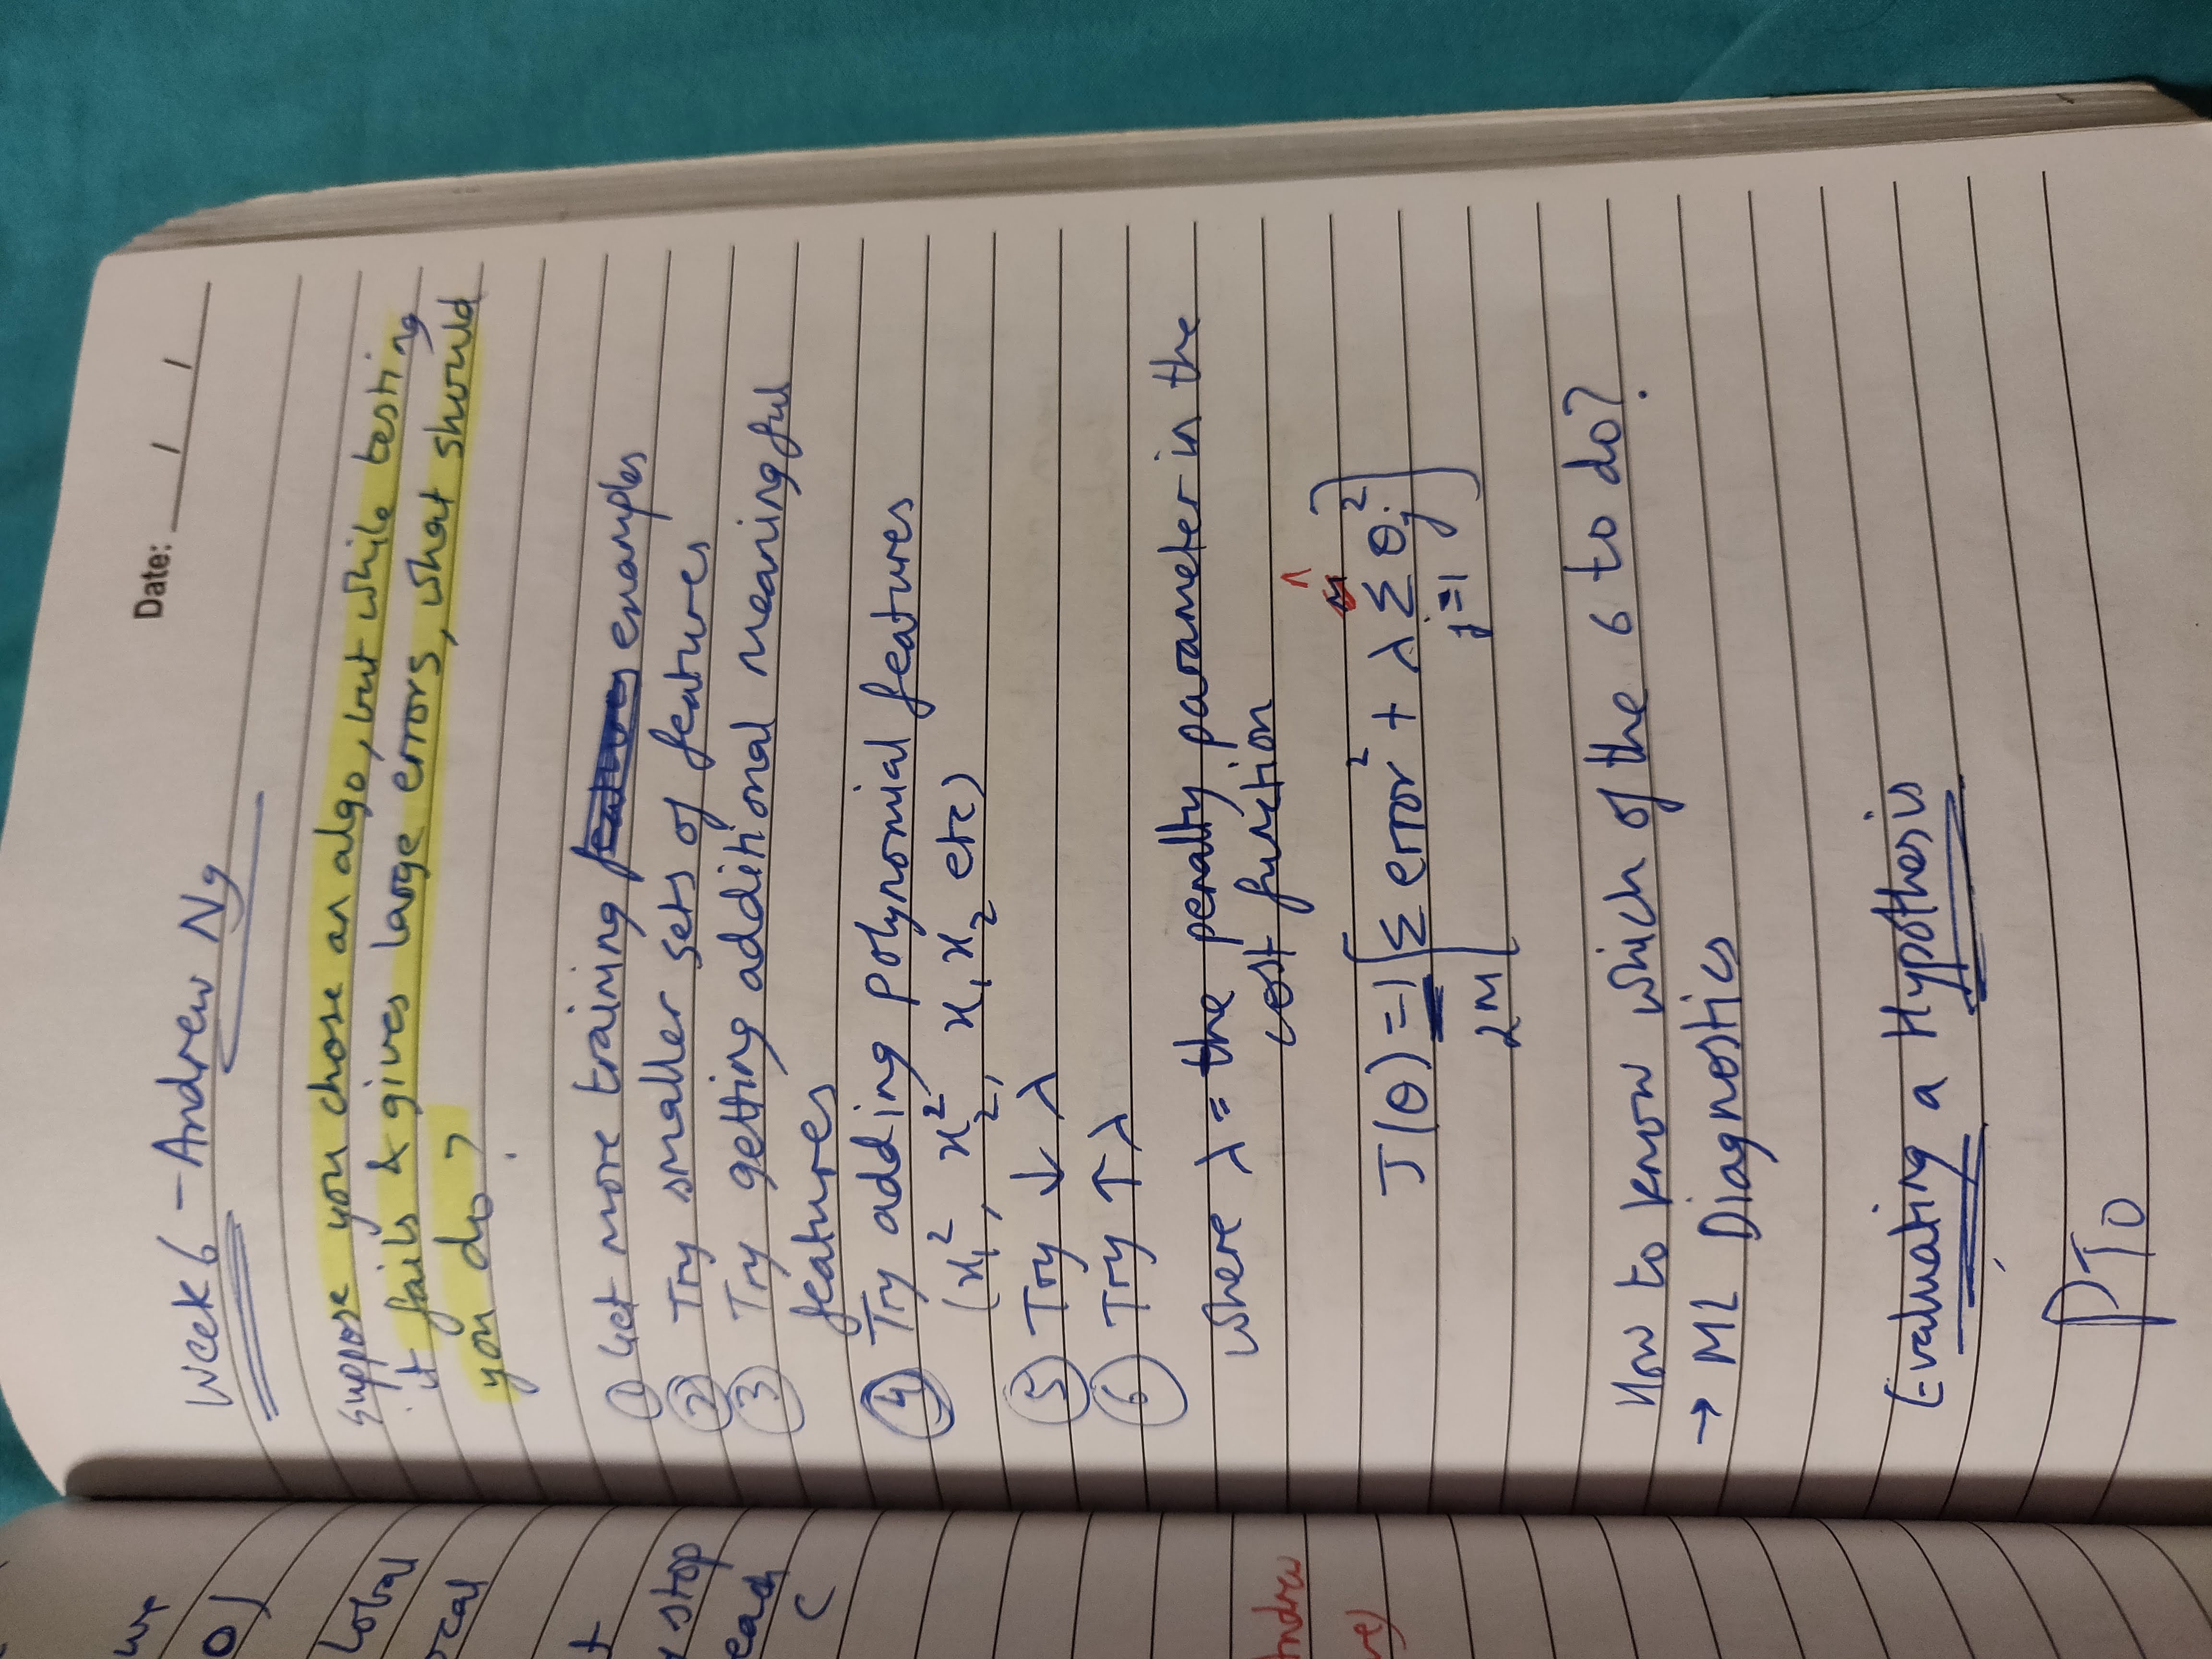 we
0)
Lobal
ocal
t
y stop
each
C
Andrew
ve)
Date: __/__/__
Week 6 - Andrew Ng
Suppose you chose an algo, but while testing
it fails & gives large errors, what should
you do?
① Get more training examples
② Try smaller sets of features
③ Try getting additional meaningful
features
④ Try adding polynomial features
(x₁², x₂², x₁x₂ etc)
⑤ Try ↓ λ
⑥ Try ↑ λ
where λ = the penalty parameter in the
cost function
J(θ) = 1/2M [Σ error² + λ Σ_{j=1}^{n} θ_j²]
How to know which of the 6 to do?
→ ML Diagnostics
Evaluating a Hypothesis
PTO